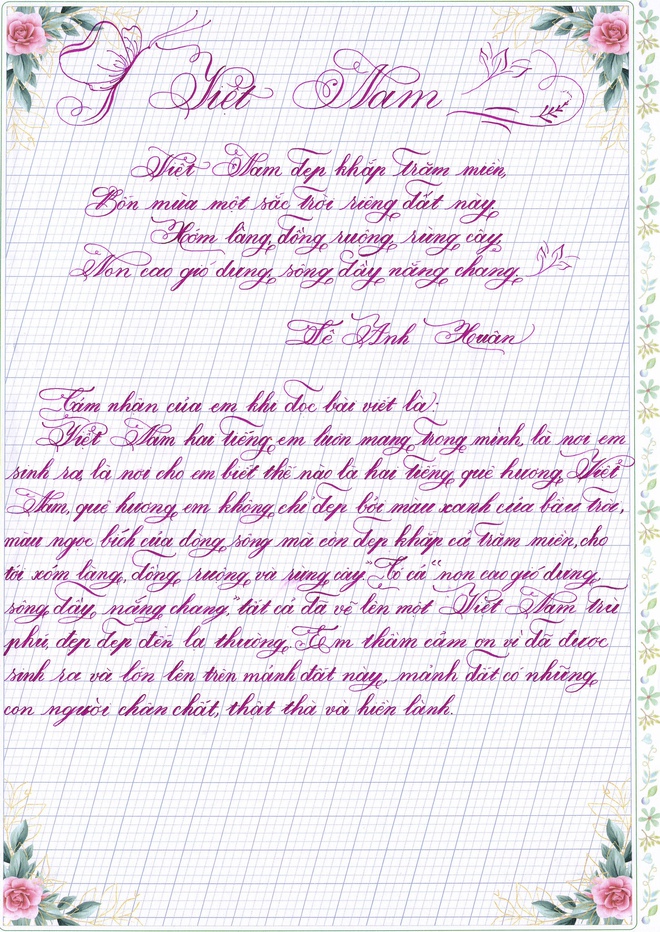 Việt Nam
Việt Nam đẹp khắp trăm miền,
Bốn mùa một sắc trời riêng đất này.
Xóm làng, đồng ruộng, rừng cây,
Non cao gió dựng, sông đầy nắng chang.
Lê Anh Xuân
Cảm nhận của em khi đọc bài viết là:
Việt Nam hai tiếng em luôn mang trong mình, là nơi em
sinh ra, là nơi cho em biết thế nào là hai tiếng quê hương. Việt
Nam, quê hương em không chỉ đẹp bởi màu xanh của bầu trời,
màu ngọc bích của dòng sông mà còn đẹp khắp cả trăm miền, cho
tới xóm làng, đồng ruộng và rừng cây. Có cả "non cao gió dựng,
sông đầy nắng chang," tất cả đã vẽ lên một Việt Nam trù
phú, đẹp đẹp đến lạ thường. Em thầm cảm ơn vì đã được
sinh ra và lớn lên trên mảnh đất này, mảnh đất có những
con người chân chất, thật thà và hiền lành.